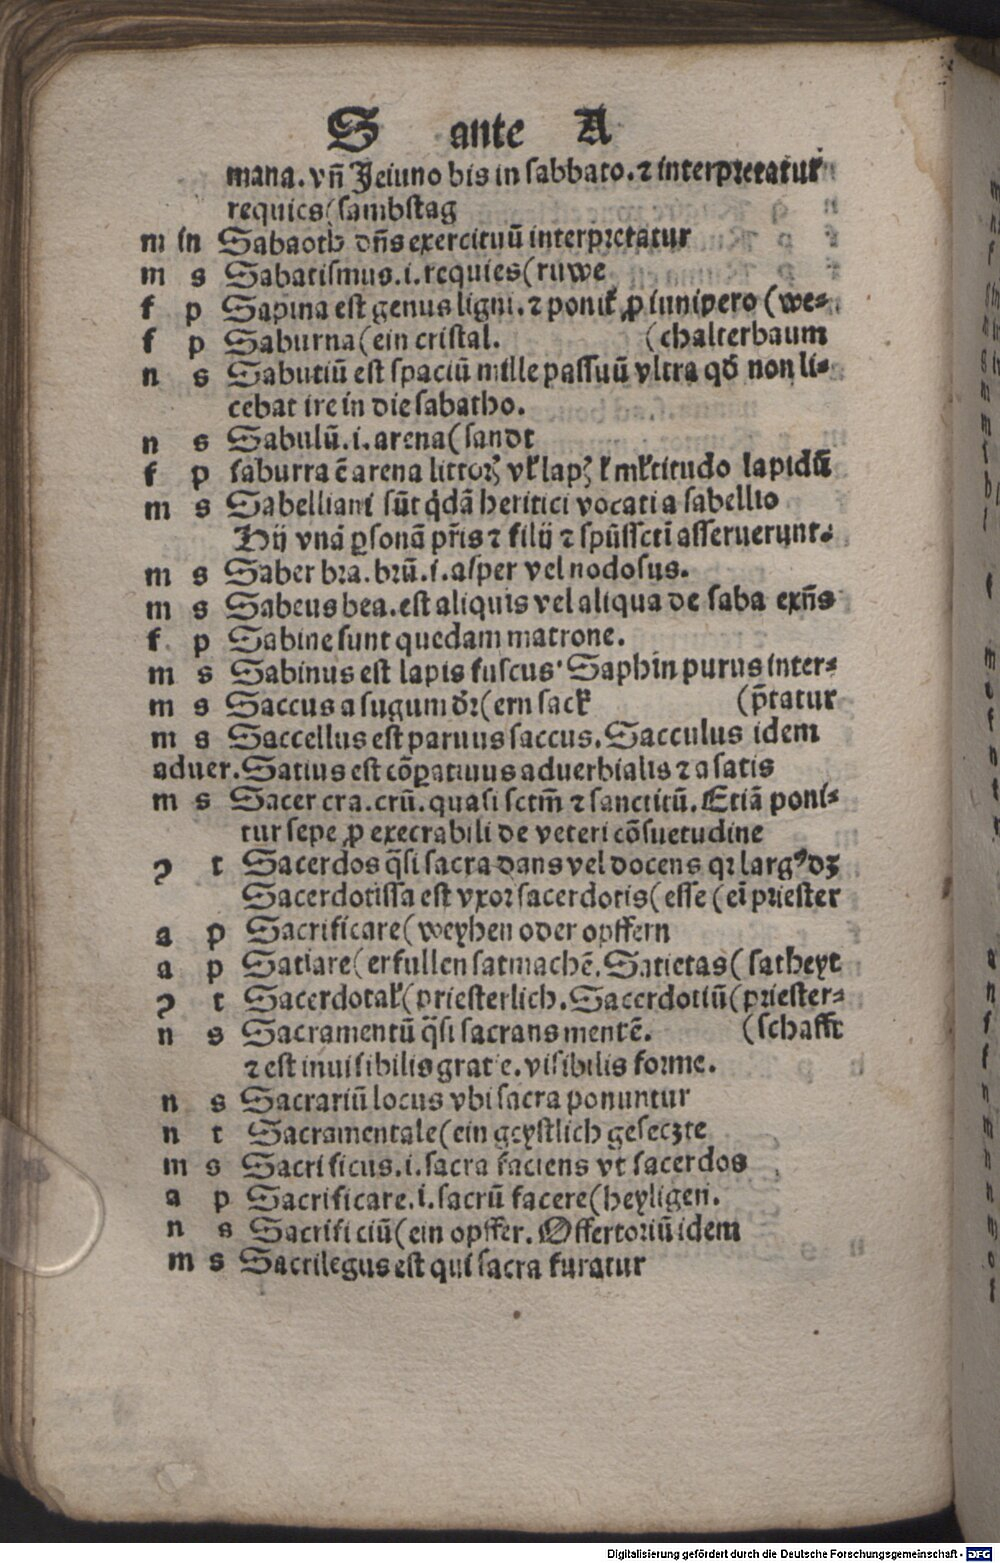 S ante A
mana. vn̄ Jeiuno bis in sabbato. ⁊ interpretatur
requies (sambstag
m in Sabaoth dn̄s exercituū interpretatur
m s Sabatismus. i. requies (ruwe
f p Sapina est genus ligni. ⁊ poniť ꝓ iunipero (we⸗
f p Saburna (ein cristal. (chalterbaum
n s Sabutiū est spaciū mille passuū vltra qđ non li⸗
cebat ire in die sabatho.
n s Sabulū. i. arena (sandt
f p saburra ē arena littoꝝ vľ lapꝫ ľ mľtitudo lapidū
m s Sabelliani sūt q̇dā heritici vocati a sabellio
Hij vnā ꝑsonā pr̄is ⁊ filij ⁊ spūssctī asseruerunt.
m s Saber bra. brū. i. asper vel nodosus.
m s Sabeus bea. est aliquis vel aliqua de saba exn̄s
f p Sabine sunt quedam matrone.
m s Sabinus est lapis fuscus. Saphin purus inter⸗
m s Saccus a sugum dꝛ̄ (ern sack (p̄tatur
m s Saccellus est paruus saccus. Sacculus idem
aduer. Satius est cōꝑatiuus aduerbialis ⁊ a satis
m s Sacer cra. crū. quasi sctm̄ ⁊ sanctitū. Etiā poni⸗
tur sepe ꝓ execrabili de veteri cōsuetudine
ꝯ t Sacerdos q̄si sacra dans vel docens qꝛ largꝰ dꝫ
Sacerdotissa est vxor sacerdotis (esse (ei priester
a p Sacrificare (weyhen oder opffern
a p Satiare (erfullen satmachē. Satietas (satheyt
ꝯ t Sacerdotaľ (priesterlich. Sacerdotiū (priester⸗
n s Sacramentū q̄si sacrans mentē. (schafft
⁊ est inuisibilis grat e. visibilis forme.
n s Sacrariū locus vbi sacra ponuntur
n t Sacramentale (ein geystlich geseczte
m s Sacrificus. i. sacra faciens vt sacerdos
a p Sacrificare. i. sacrū facere (heyligen.
n s Sacrificiū (ein opffer. Offertoriū idem
m s Sacrilegus est qui sacra furatur
Digitalisierung gefördert durch die Deutsche Forschungsgemeinschaft - DFG